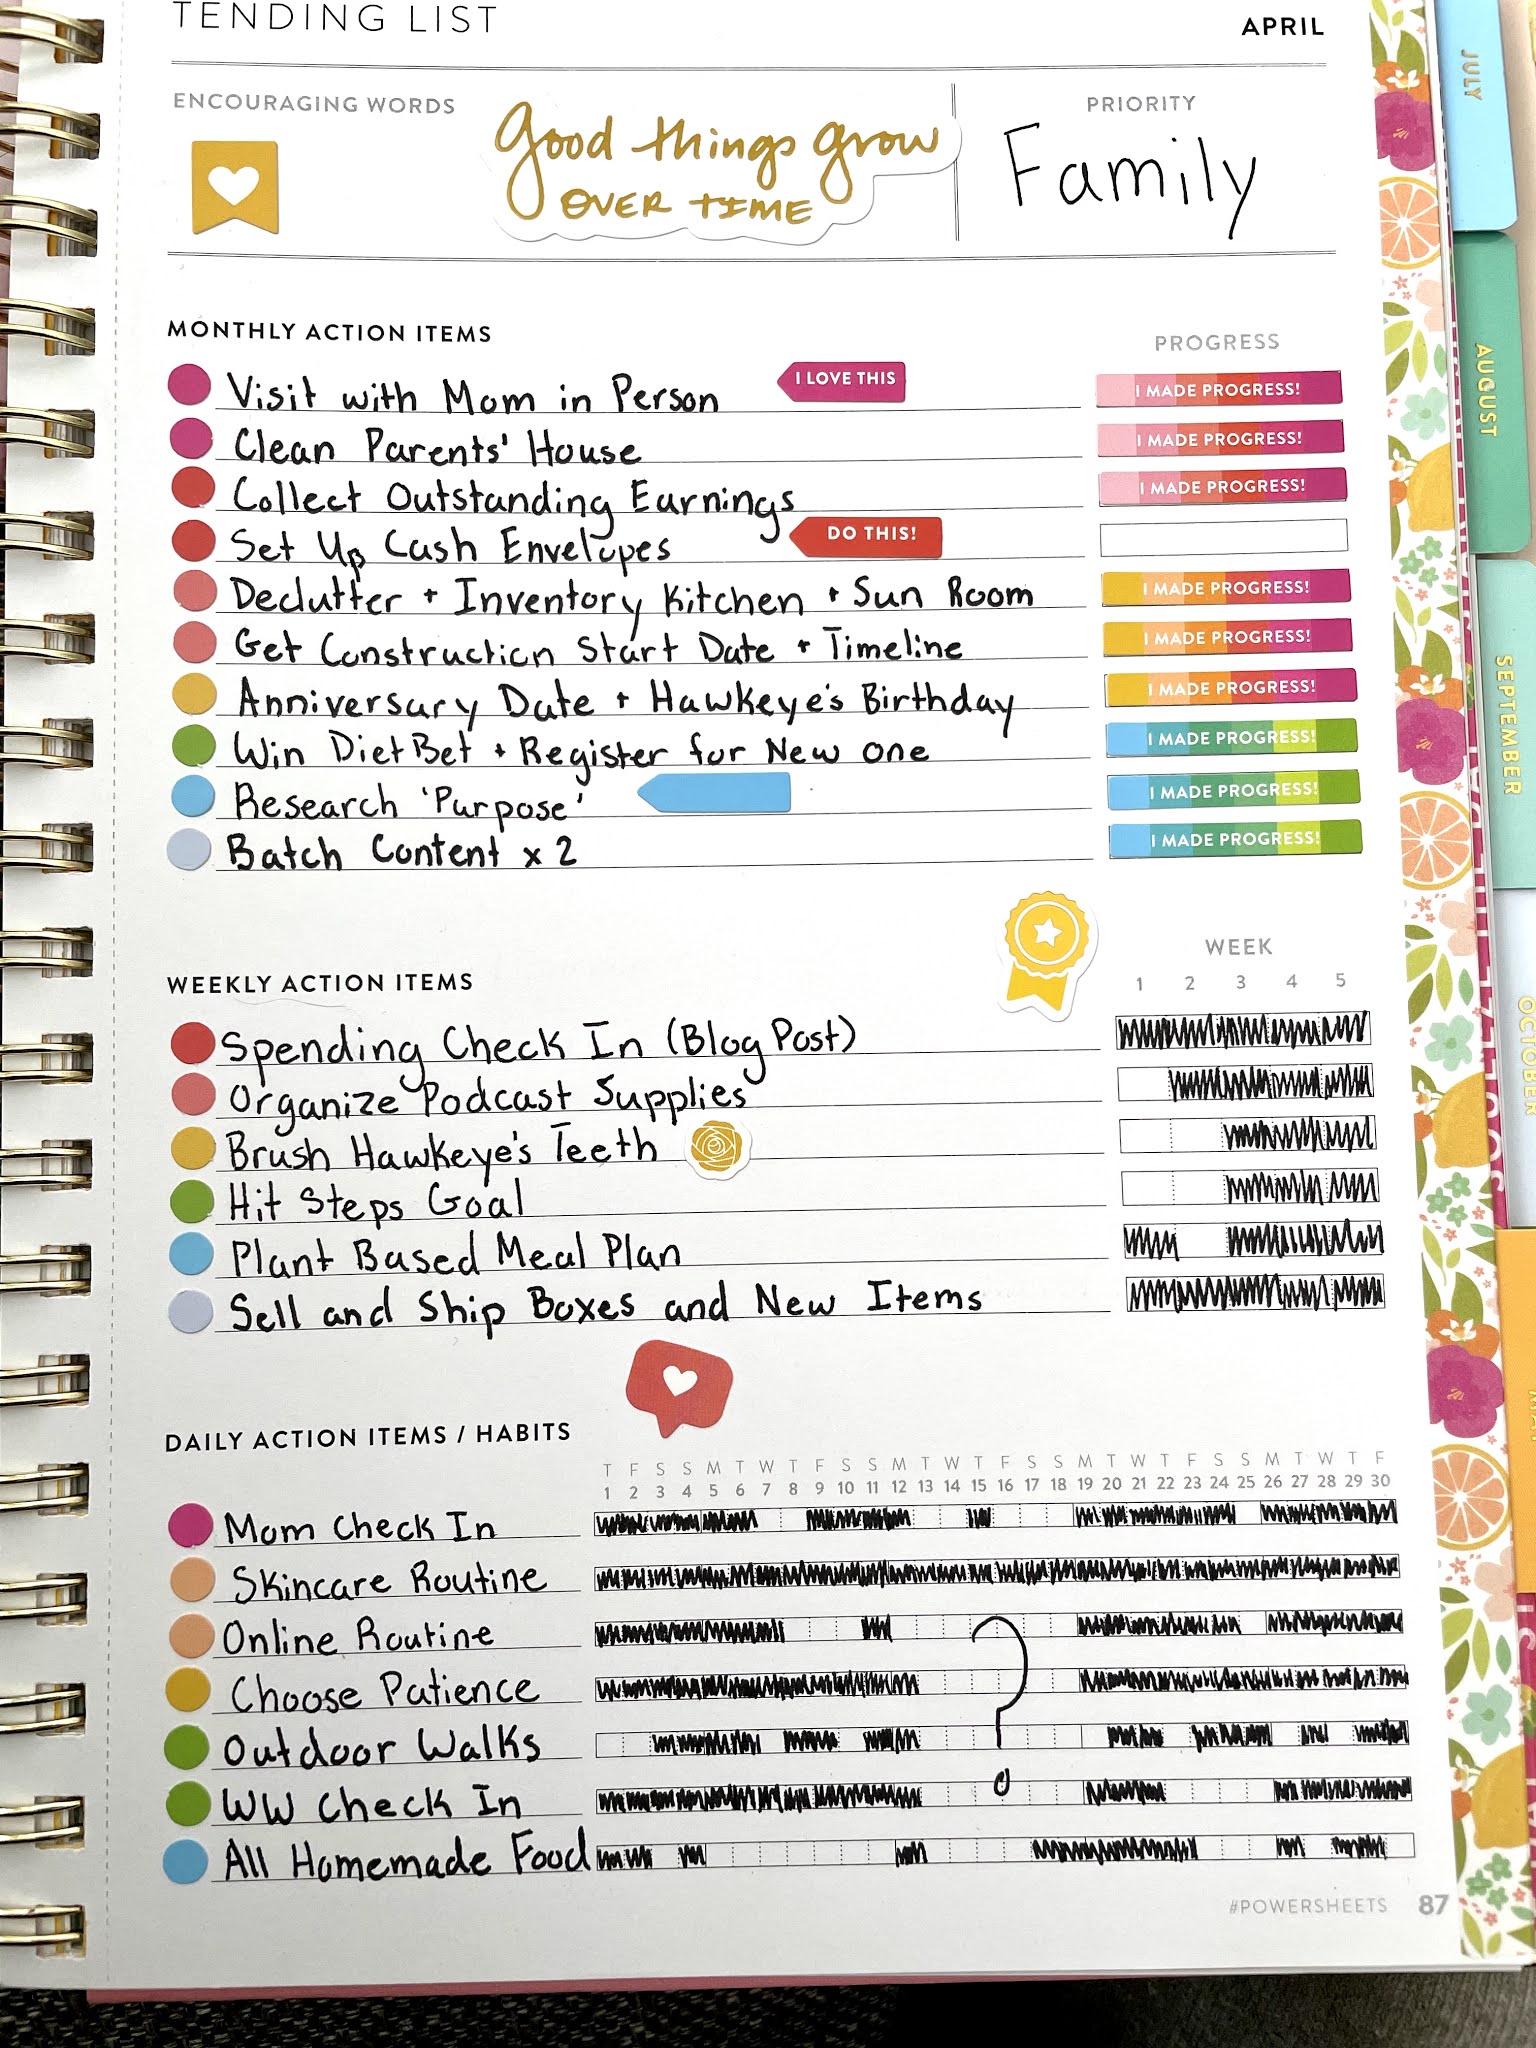 TENDING LIST
APRIL
ENCOURAGING WORDS
good things grow
OVER TIME
PRIORITY
Family
MONTHLY ACTION ITEMS
PROGRESS
Visit with Mom in Person I LOVE THIS I MADE PROGRESS!
Clean Parents' House I MADE PROGRESS!
Collect Outstanding Earnings I MADE PROGRESS!
Set Up Cash Envelopes DO THIS!
Declutter + Inventory Kitchen + Sun Room I MADE PROGRESS!
Get Construction Start Date + Timeline I MADE PROGRESS!
Anniversary Date + Hawkeye's Birthday I MADE PROGRESS!
Win DietBet + Register for New One I MADE PROGRESS!
Research 'Purpose' I MADE PROGRESS!
Batch Content x 2 I MADE PROGRESS!
WEEKLY ACTION ITEMS
WEEK
1 2 3 4 5
Spending Check In (Blog Post)
Organize Podcast Supplies
Brush Hawkeye's Teeth
Hit Steps Goal
Plant Based Meal Plan
Sell and Ship Boxes and New Items
DAILY ACTION ITEMS / HABITS
T F S S M T W T F S S M T W T F S S M T W T F S S M T W T F
1 2 3 4 5 6 7 8 9 10 11 12 13 14 15 16 17 18 19 20 21 22 23 24 25 26 27 28 29 30
Mom Check In
Skincare Routine
Online Routine
Choose Patience
?
Outdoor Walks
WW Check In
All Homemade Food
#POWERSHEETS 87
JULY
AUGUST
SEPTEMBER
OCTOBER